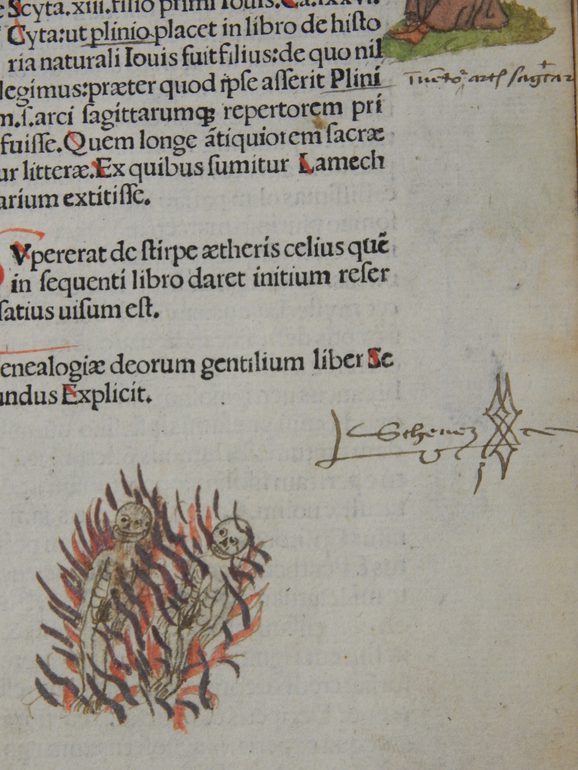 Scyta.xiii.filio primi Iouis.Ca.lxxvi.
Cyta:ut plinio placet in libro de histo
ria naturali Iouis fuit filius:de quo nil
legimus:præter quod ipse asserit Plini
m.s.arci sagittarumqꝫ repertorem pri
fuisse.Quem longe ātiquiorem sacræ
ur litteræ.Ex quibus sumitur Lamech
arium extitisse.
Vpererat de stirpe ætheris celius quē
in sequenti libro daret initium reser
satius uisum est.
enealogiæ deorum gentilium liber Se
undus Explicit.